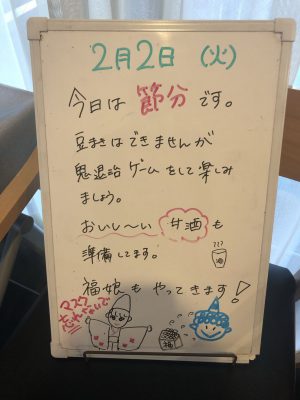 2月2日 (火)
今日は 節分 です。
豆まきはできませんが
鬼退治ゲームをして楽しみ
ましょう。
おいし～い 甘酒 も
準備してます。
???
酒
福娘も やってきます!
マスク
忘れないで
福